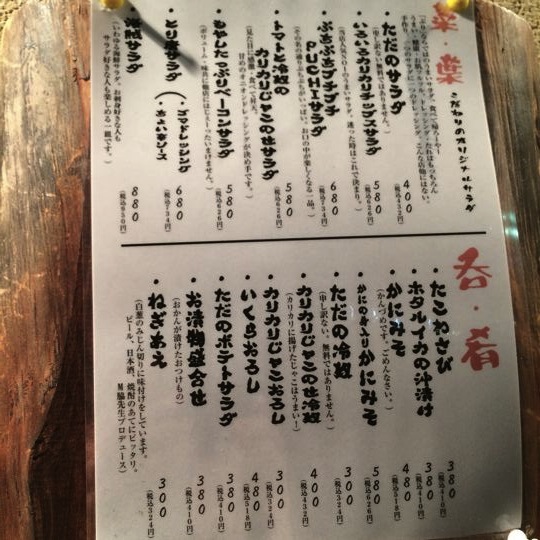 菜・葉 こだわりのオリジナルサラダ
・ただのサラダ 400 (税込432円)
(申し訳ない、無料ではありません。)
・いろいろカリカリチップスサラダ 580 (税込626円)
・ぷちぷちプチプチ
PUCHIサラダ 680 (税込734円)
(その名の通りぷちぷちがいっぱい。お口の中が楽しくなる一品。)
・トマトと冷奴の
カリカリじゃこのせサラダ 580 (税込626円)
・もやしたっぷりベーコンサラダ 580 (税込626円)
・とり唐サラダ 680 (税込734円)
(・ゴマドレッシング
・ちょい辛ソース)
・海賊サラダ 880 (税込950円)
(いわゆる海鮮サラダ。お刺身好きな人も
サラダ好きな人も楽しめる一緒です。)
呑・肴
・たこわさび 380 (税込410円)
・ホタルイカの沖漬け 380 (税込410円)
・かにみそ 480 (税込518円)
(かんづめです。ごめんなさい。)
・かにの身入りかにみそ 580 (税込626円)
・ただの冷奴 300 (税込324円)
(申し訳ない、無料ではありません。)
・カリカリじゃこのせ冷奴 400 (税込432円)
(カリカリに揚げたじゃこはうまい!)
・カリカリじゃこおろし 300 (税込324円)
・いくらおろし 480 (税込518円)
・ただのポテトサラダ 380 (税込410円)
・お漬物盛合せ 380 (税込410円)
(おかんが漬けたおつけもの)
・ねぎあえ 300 (税込324円)
(白葱のみじん切りに味付けをしています。
ビール、日本酒、焼酎のあてにピッタリ。
脇先生プロデュース)